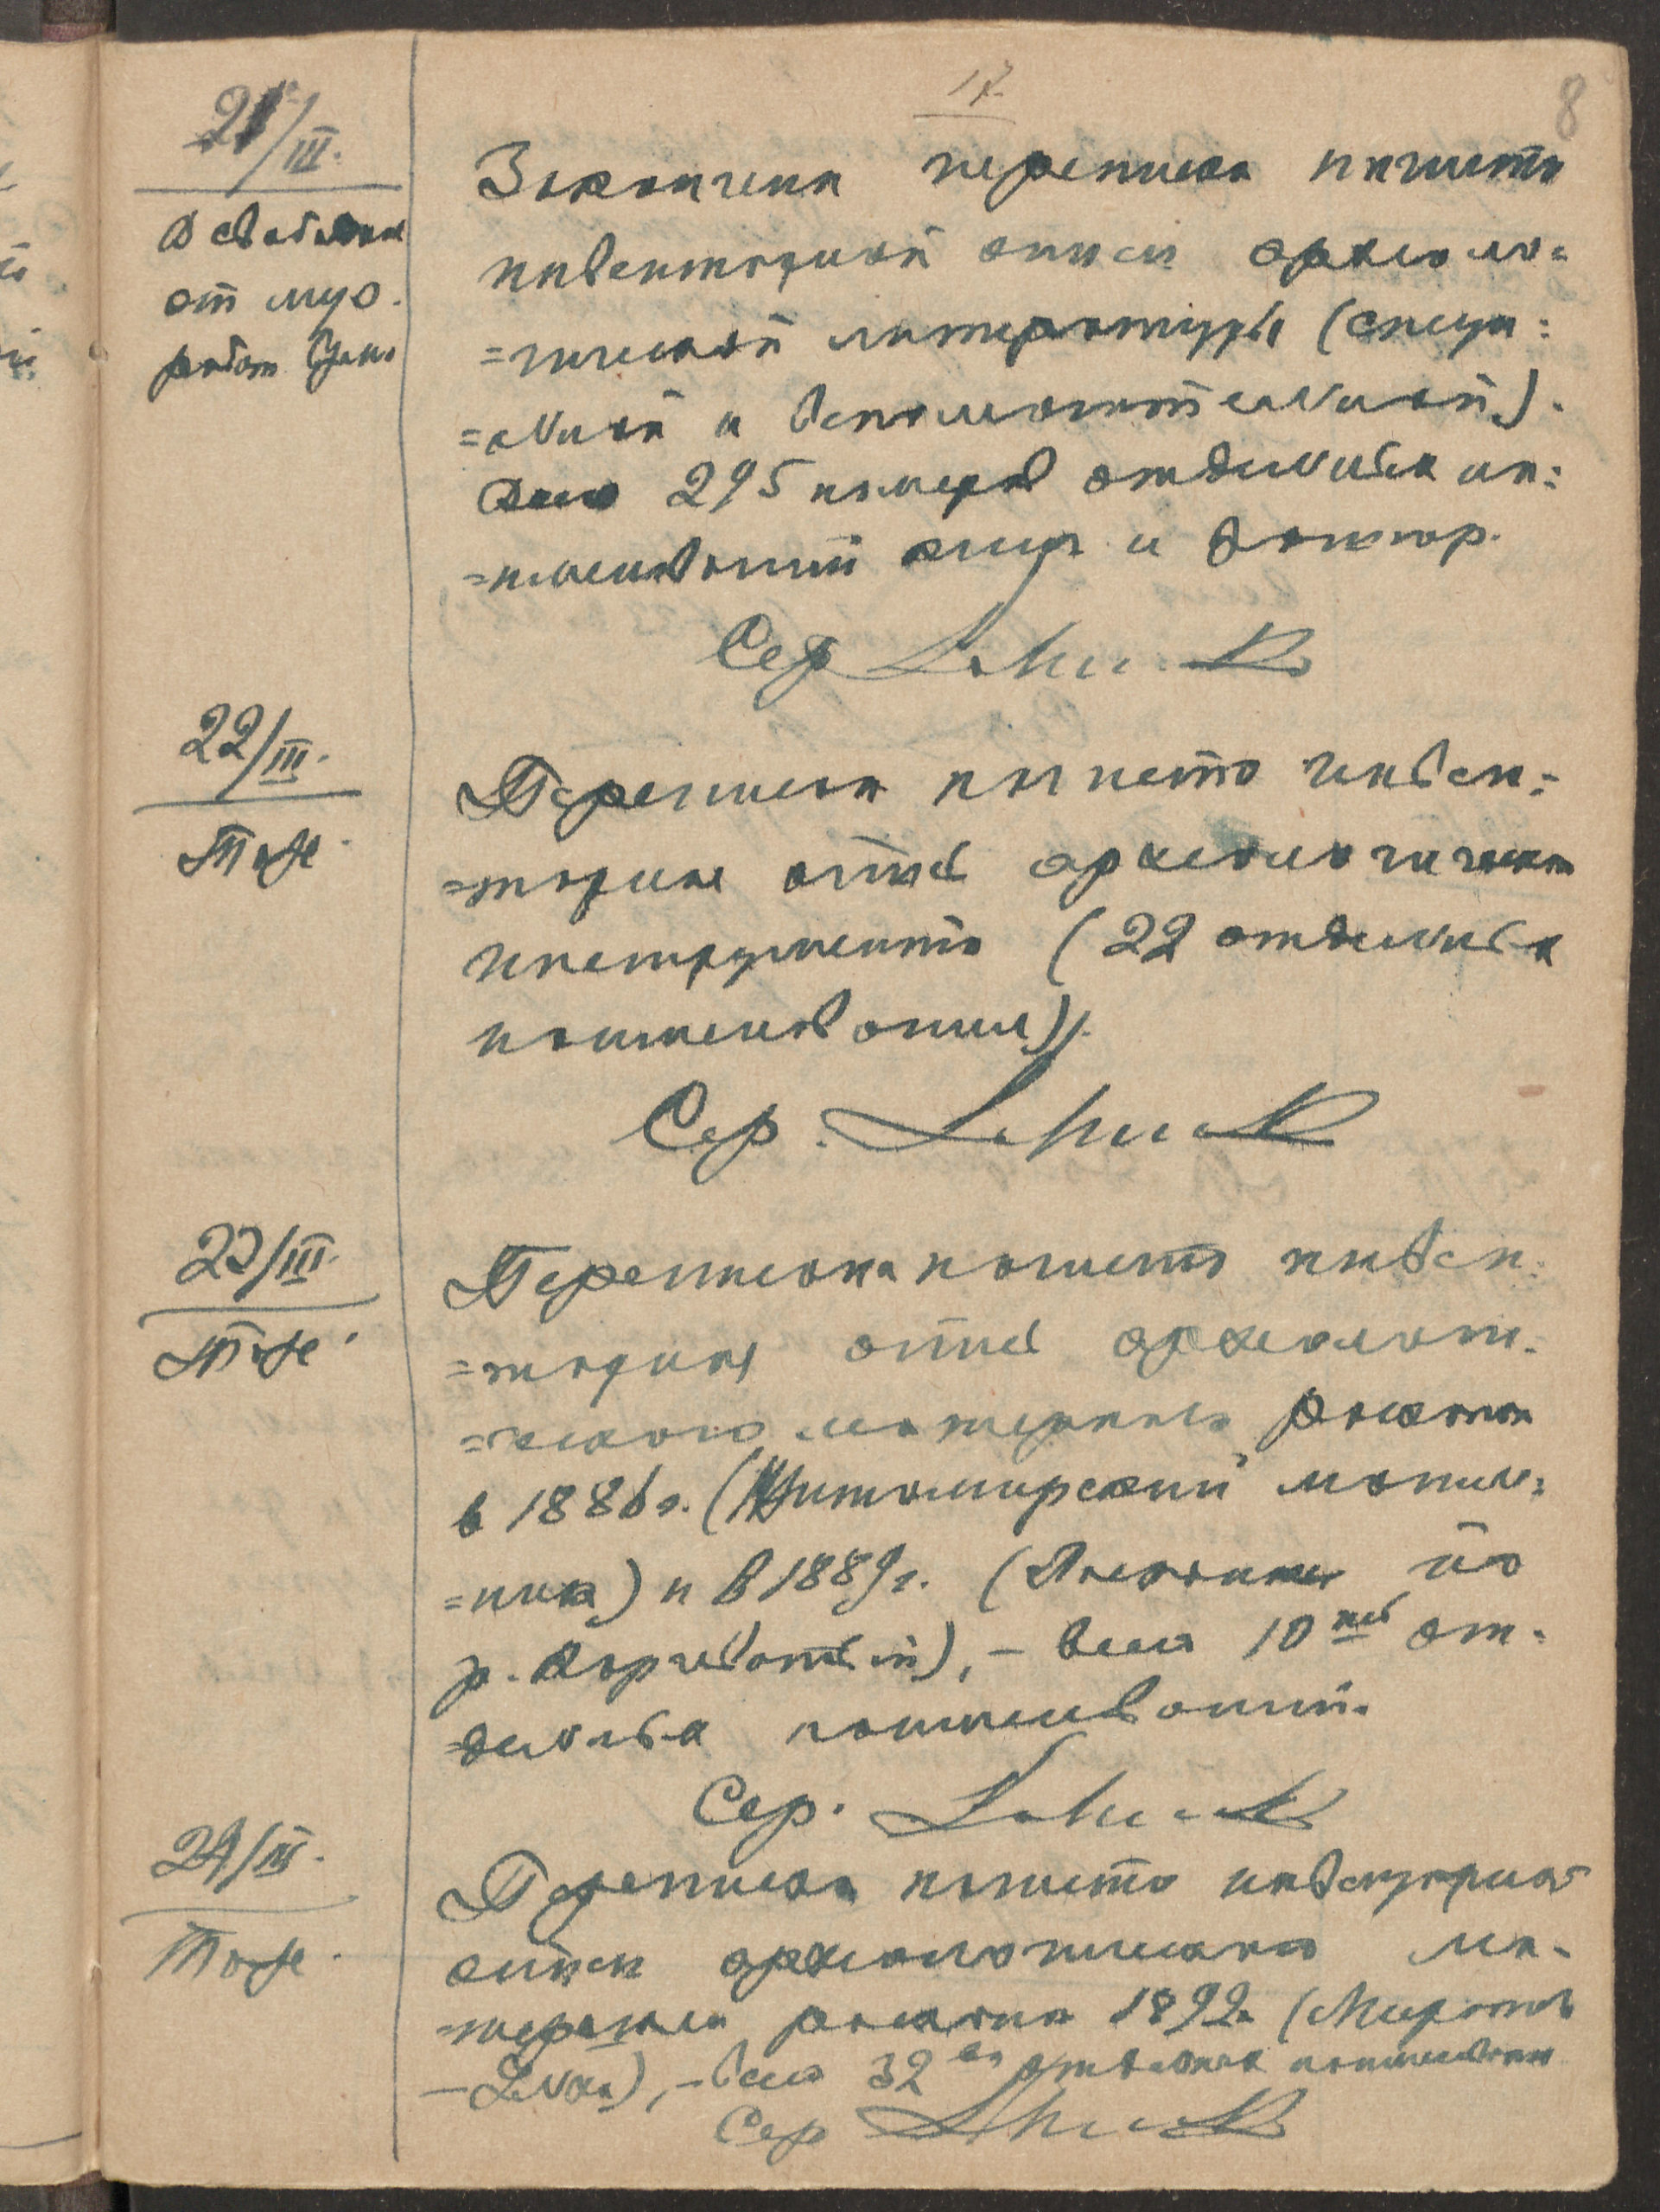 17.
8
21/III.
Закончена переписка начисто
инвентарной описи археоло=
=гической литературы (специ=
=альной и вспомогательной).
Всего 295 номеров отдельных на=
=именований книг и брошюр.
Сер.
в свободное
от муз.
работ время
22/III.
Тоже.
Переписка начисто инвен=
=тарной описи археологического
инструмента (22 отдельных
наименования).
Сер.
23/III.
Тоже.
Переписка начисто инвен=
=тарной описи археологи=
=ческого материала раскопок
в 1886 г. (Житомирский могиль=
=ник) и в 1889 г. (Раскопки по
р. Корчеватой), – всего 10 от=
=дельных наименований.
Сер.
24/III.
Тоже.
Переписка начисто инвентарной
описи археологического ма=
=териала раскопки 1892 г.
всего 32 отдельных наименования
Сер.